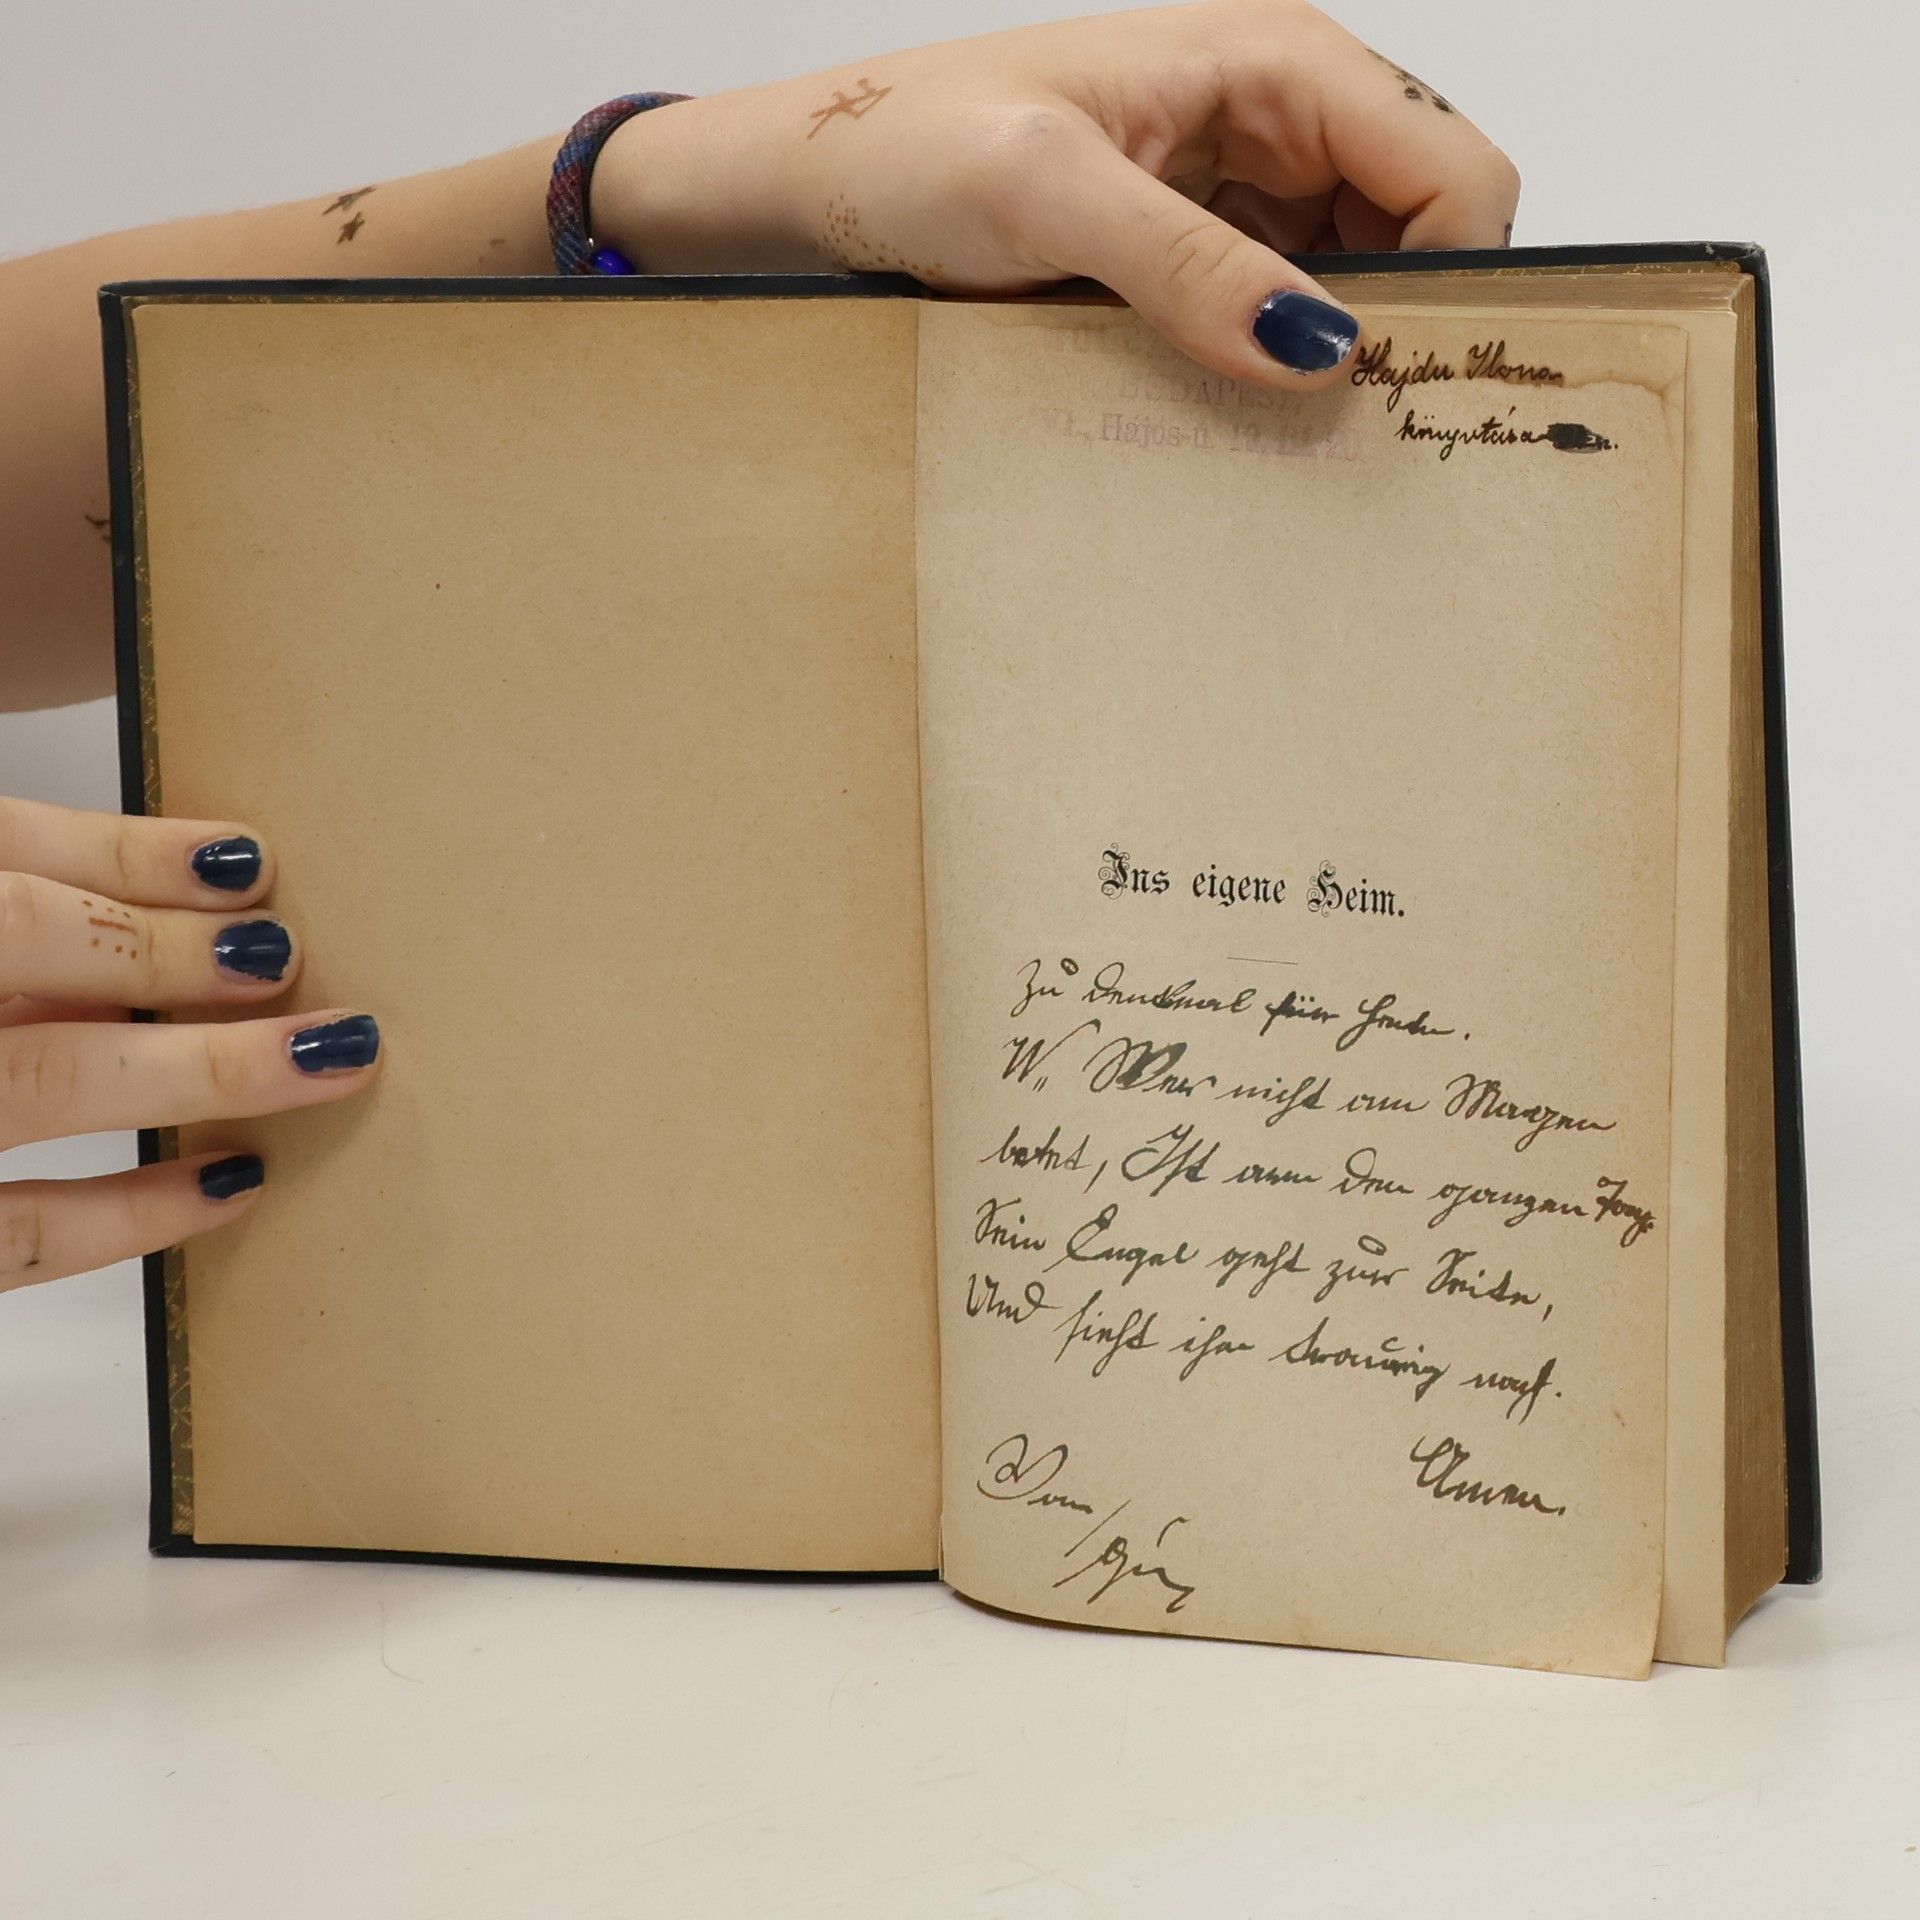 BUDAPEST,
Hajós-u.
Hajdu Ilona
könyvtára
Ins eigene Heim.
Zu denkmal für
W„ Wer nicht am Morgen
betet, Ist am den ganzen Tag.
Sein Engel geht zur Seite,
Und sieht ihn traurig nach.
Amen.
Von